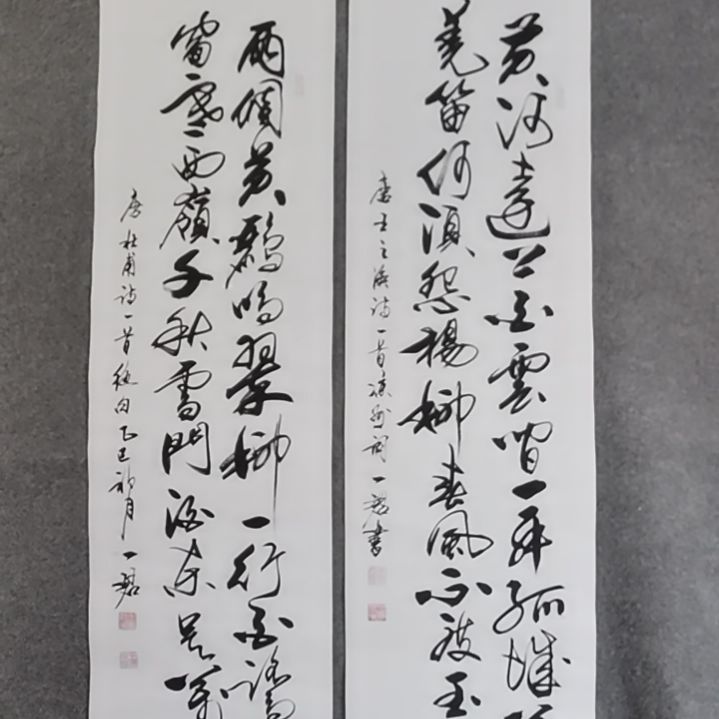 黄河遠上白雲間一片孤城
羌笛何須怨楊柳春風不度玉
唐王之渙詩一首凉州詞一 書
兩個黄鸝鳴翠柳一行白鷺
窗含西嶺千秋雪門泊東吳萬
唐杜甫詩一首絶句乙巳初月一